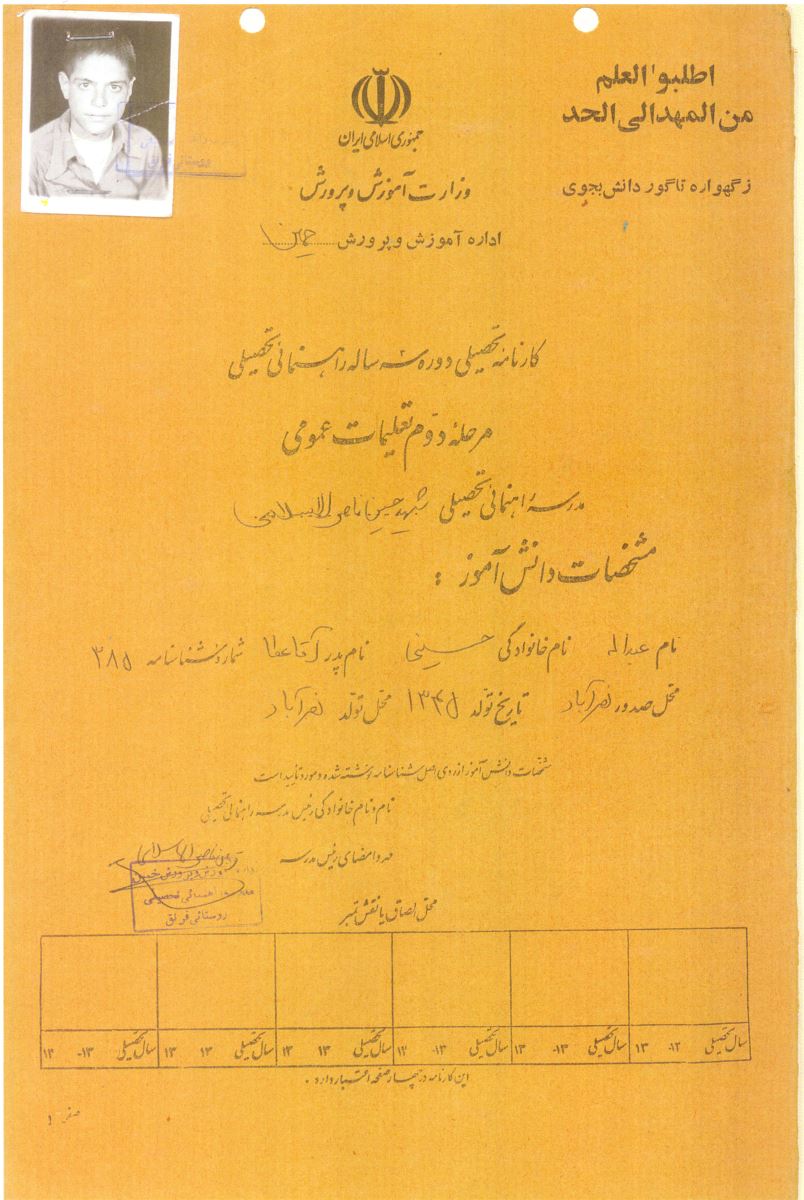 اطلبوا العلم
من المهدالی الحد
ز گهواره تا گور دانش بجوی
جمهوری اسلامی ایران
وزارت آموزش و پرورش
اداره آموزش و پرورش خمین
کارنامه تحصیلی دوره سه ساله راهنمائی تحصیلی
مرحله دوم تعلیمات عمومی
مدرسه راهنمائی تحصیلی شهید حسین ناصرالاسلامی
مشخصات دانش آموز :
نام عبداله نام خانوادگی حسینی نام پدر آقا عطا شماره شناسنامه ۳۸۵
محل صدور نصرآباد تاریخ تولد ۱۳۴۵ محل تولد نصرآباد
مشخصات دانش آموز از روی اصل شناسنامه نوشته شده و مورد تأیید است
نام و نام خانوادگی رئیس مدرسه راهنمائی تحصیلی
مهر و امضای رئیس مدرسه
اداره آموزش و پرورش خمین
مدرسه راهنمائی تحصیلی
روستائی فرنق
محل الصاق یا نقش تمبر
سال تحصیلی ۱۳ ۱۳ سال تحصیلی ۱۳ ۱۳ سال تحصیلی ۱۳ ۱۳ سال تحصیلی ۱۳ ۱۳ سال تحصیلی ۱۳ ۱۳ سال تحصیلی ۱۳ ۱۳
این کارنامه در چهار صفحه اعتبار دارد .
صفحه ۱